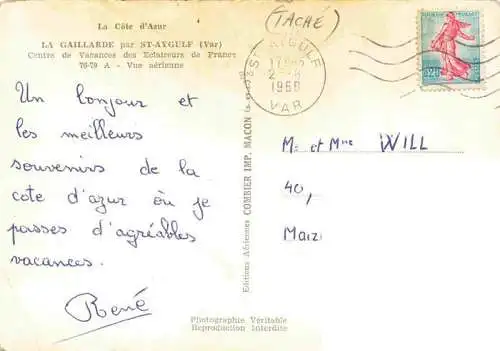 La Côte d'Azur
(TACHÉ)
LA GAILLARDE par ST-AYGULF (Var)
Centre de Vacances des Eclaireurs de France
76-79 A - Vue aérienne
ST-AYGULF
1960
VAR
Un bonjour et
les meilleurs
souvenirs de la
cote d'azur où je
passes d'agréables
vacances.
René
Editions Aériennes COMBIER IMP. MACON
Mr et Mme WILL
40,
Maiz
Photographie Véritable
Reproduction Interdite